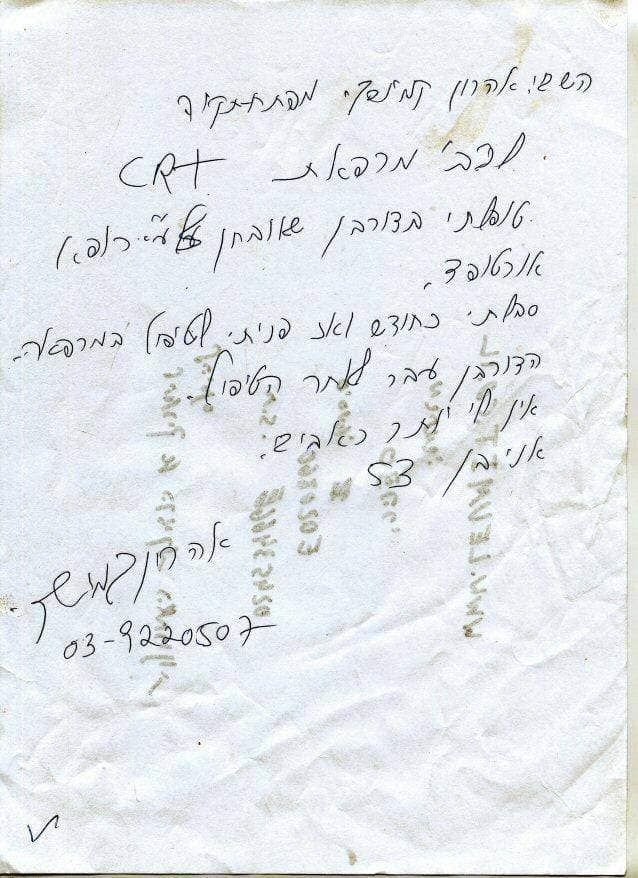 אהרון קמינסקי מפתח-תקוה
לכב' מרפאת CRT
טופלתי בדורבן שאובחן ע"י רופא
אורטופד.
סבלתי כחודש ואז פניתי לטיפול במרפאה.
הדורבן עבר לאחר הטיפול.
אין לי יותר כאבים.
אני בן 53
אהרון קמינסקי
03-9220507